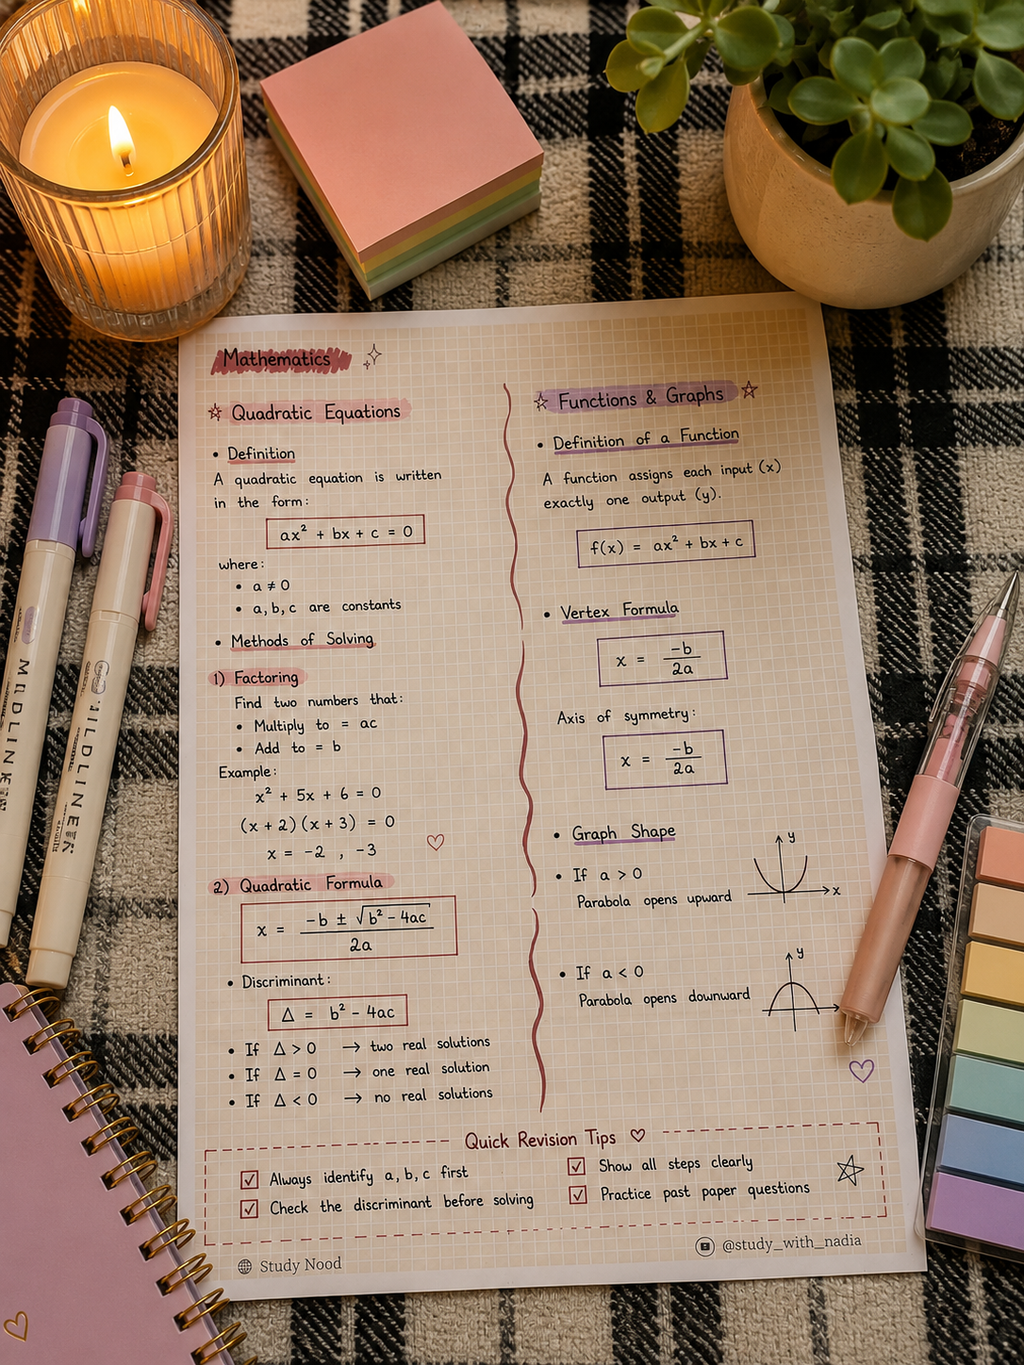 Mathematics
Quadratic Equations
• Definition
A quadratic equation is written
in the form:
ax² + bx + c = 0
where:
• a ≠ 0
• a, b, c are constants
• Methods of Solving
1) Factoring
Find two numbers that:
• Multiply to = ac
• Add to = b
Example:
x² + 5x + 6 = 0
(x + 2)(x + 3) = 0
x = -2 , -3
2) Quadratic Formula
x = (-b ± √(b² - 4ac)) / 2a
• Discriminant:
Δ = b² - 4ac
• If Δ > 0 → two real solutions
• If Δ = 0 → one real solution
• If Δ < 0 → no real solutions
Functions & Graphs
• Definition of a Function
A function assigns each input (x)
exactly one output (y).
f(x) = ax² + bx + c
• Vertex Formula
x = -b / 2a
Axis of symmetry:
x = -b / 2a
• Graph Shape
• If a > 0
Parabola opens upward
y
x
• If a < 0
Parabola opens downward
y
Quick Revision Tips
☑ Always identify a, b, c first
☑ Check the discriminant before solving
☑ Show all steps clearly
☑ Practice past paper questions
Study Nood
@study_with_nadia